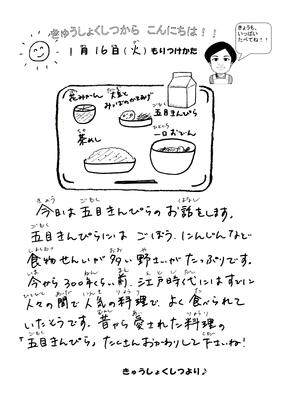 きゅうしょくしつから こんにちは！！
きょうも、
いっぱい
たべてね！！
1月16日(火)もりつけかた
花みかん
大豆と
みつばのかきあげ
五目きんぴら
茶めし
一口おでん
今日は五目きんぴらのお話をします。
五目きんぴらには ごぼう、にんじんなど
食物せんいが多い野さいがたっぷりです。
今から300年くらい前、江戸時代にはすでに
人々の間で人気の料理で、よく食べられて
いたそうです。昔から愛された料理の
「五目きんぴら」たくさんおかわりして下さいね!
きゅうしょくしつより♪